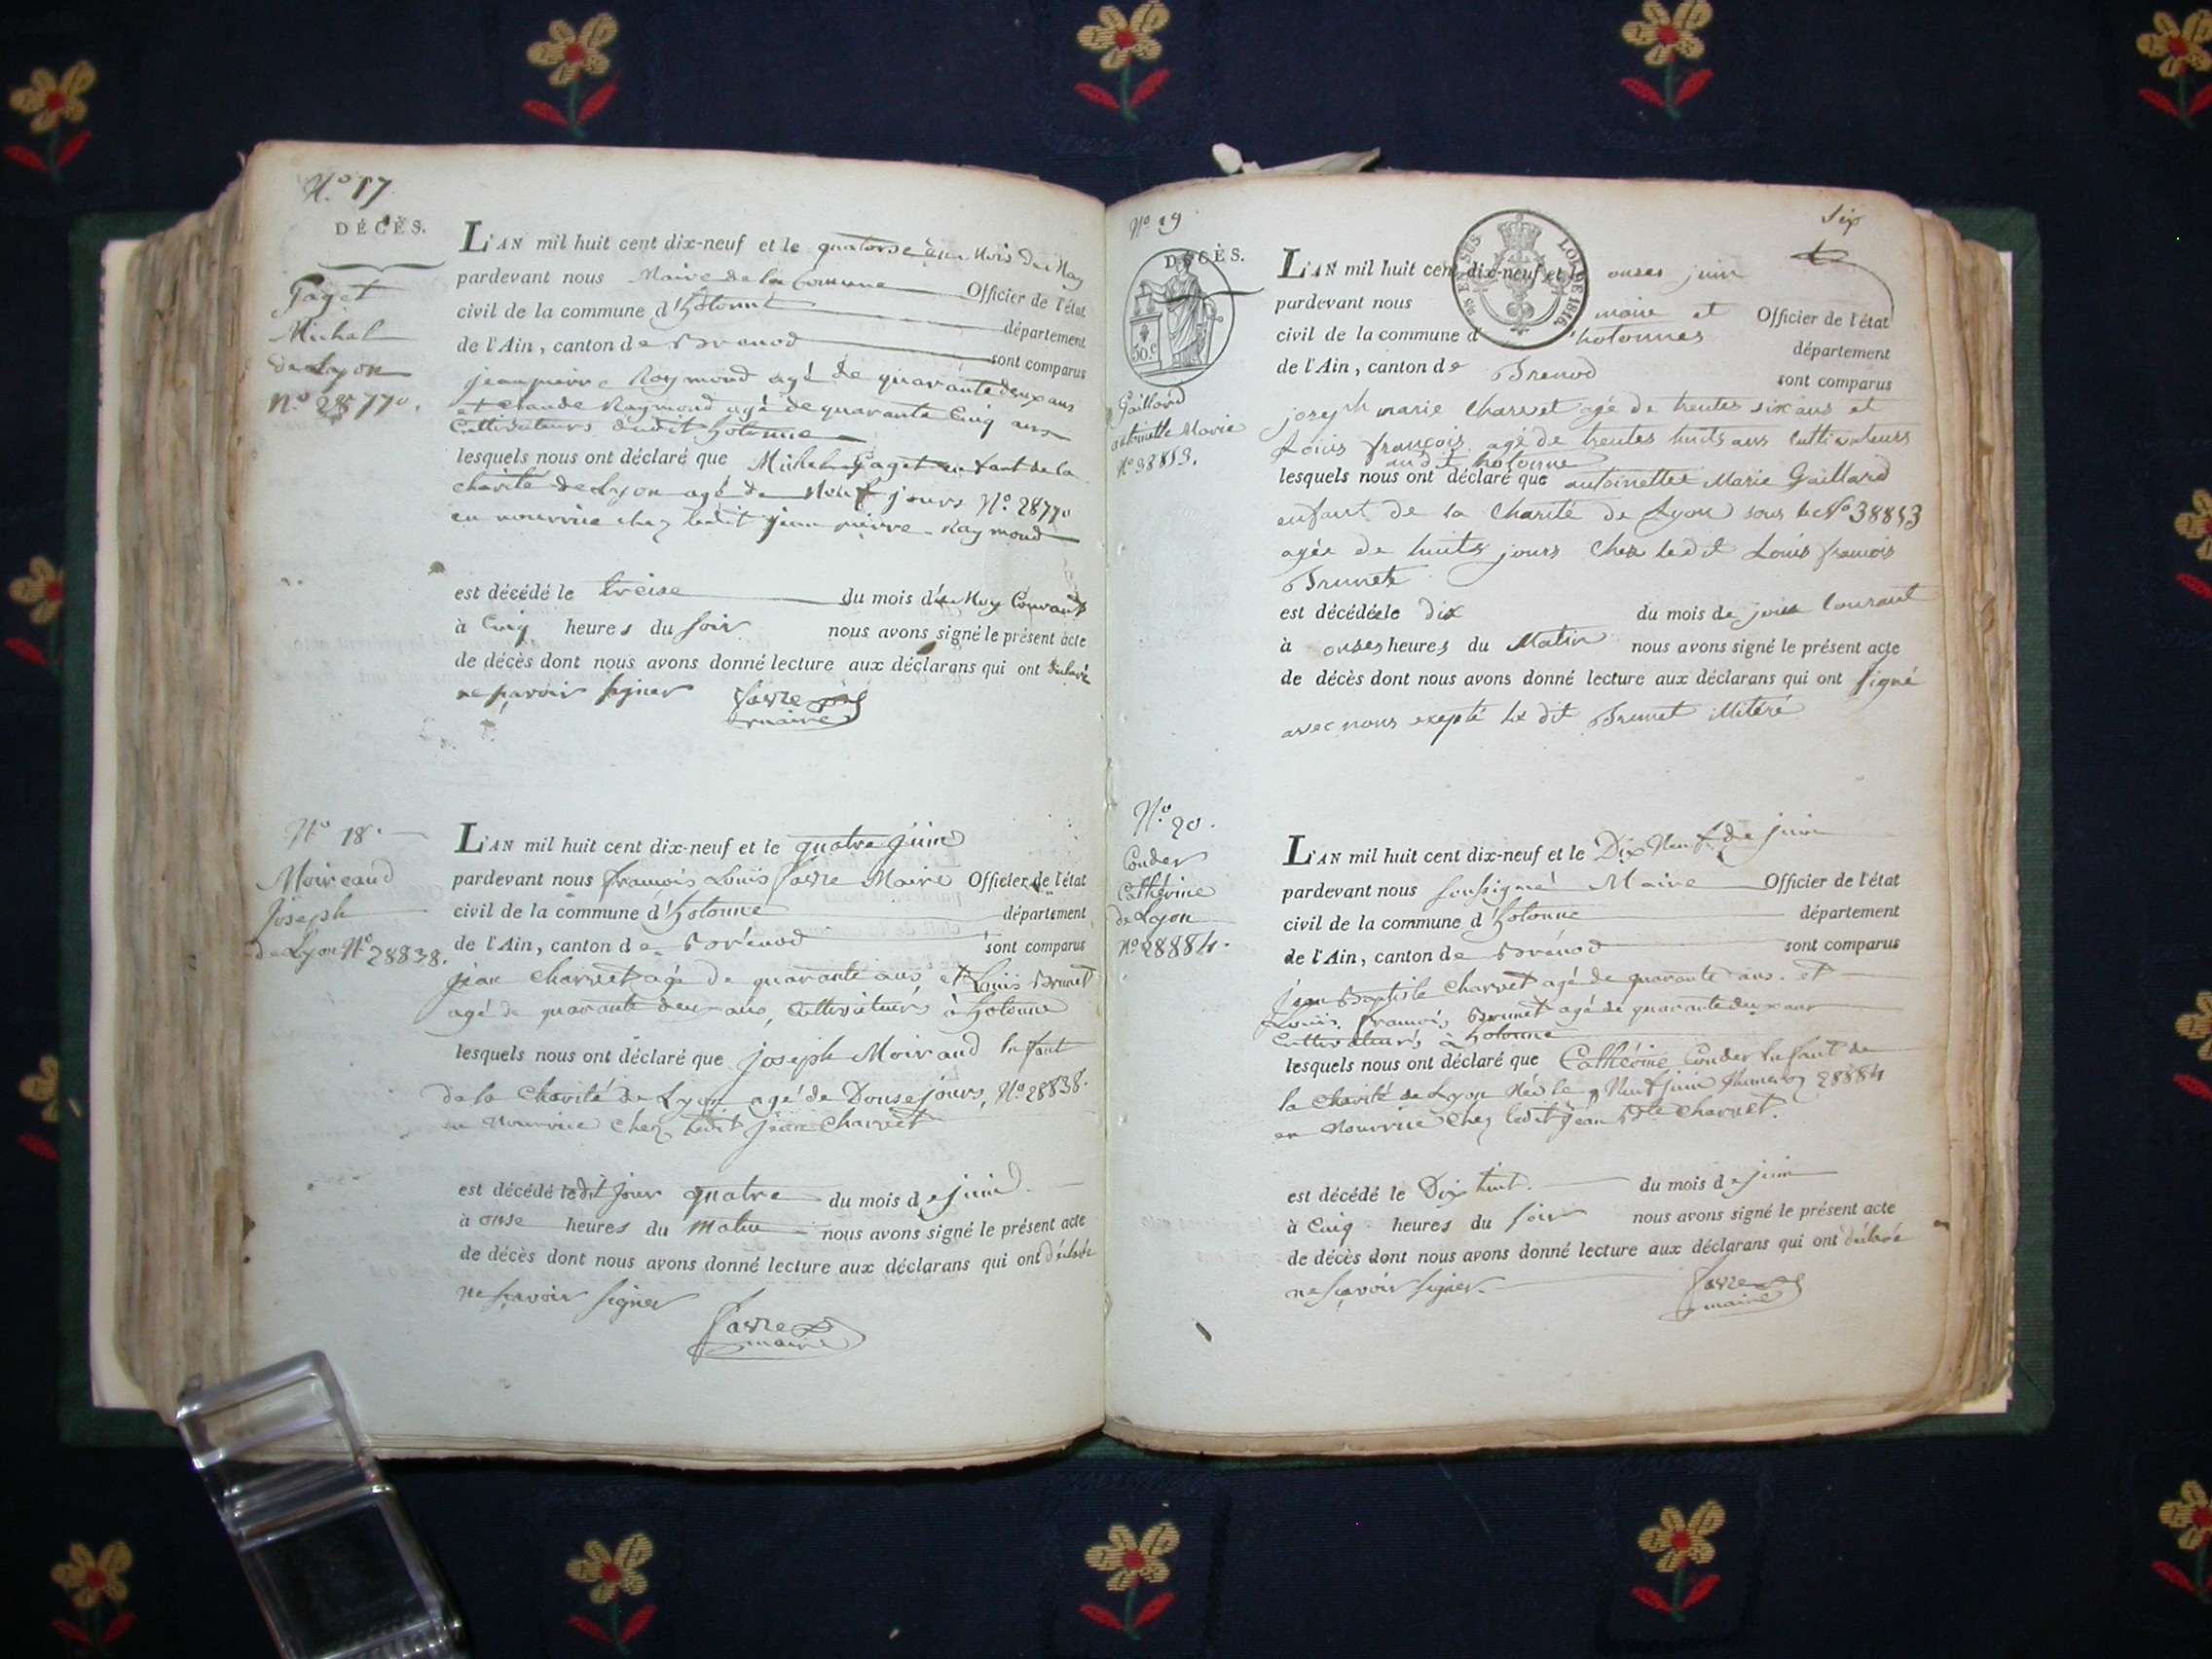 N.º 17
DÉCÈS.
Paget
Michel
de Lyon
N.º 28770.
L'AN mil huit cent dix-neuf et le quatorse du Mois de May
pardevant nous Maire de la Commune Officier de l'état
civil de la commune d'hotonne département
de l'Ain, canton de Brenod sont comparus
jean pierre Raymond agé de quarante deux ans
et Claude Raymond agé de quarante Cinq ans
Cultivateurs dudit hotonne
lesquels nous ont déclaré que Michel Paget enfant de la
charité de Lyon agé de Neuf jours N.º 28770
en nourrice chez ledit jean pierre Raymond
est décédé le treise du mois de May Courant
à Cinq heures du soir nous avons signé le présent acte
de décès dont nous avons donné lecture aux déclarans qui ont déclaré
ne sçavoir signer
Favre
maire
N.º 18.
Moiraud
Joseph
de Lyon N.º 28838.
L'AN mil huit cent dix-neuf et le quatre juin
pardevant nous francois Louis favre Maire Officier de l'état
civil de la commune d'hotonne département
de l'Ain, canton de Brénod sont comparus
jean Charvet agé de quarante ans et Louis Brunet
agé de quarante deux ans, Cultivateurs à hotonne
lesquels nous ont déclaré que joseph Moiraud Enfant
de la Charité de Lyon agé de Douse jours, N.º 28838.
en Nourrice chez ledit jean Charvet
est décédé ledit jour quatre du mois de juin
à onse heures du matin nous avons signé le présent acte
de décès dont nous avons donné lecture aux déclarans qui ont déclaré
ne sçavoir signer
Favre
maire
Six
Nº 19
DÉCÈS.
50.c
EN SUS LOI DE 1816.
Gaillard
antoinette Marie
Nº 38853.
L'AN mil huit cent dix-neuf et le onses juin
pardevant nous maire et Officier de l'état
civil de la commune d'hotonnes département
de l'Ain, canton de Brenod sont comparus
joseph marie Charvet agé de trentes six ans et
Louis françois agé de trentes huits ans cultivateurs
audit hotonne
lesquels nous ont déclaré que antoinettes Marie Gaillard
enfant de la Charité de Lyon sous le Nº 38853
agée de huits jours chez ledit Louis francois
Brunet
est décédée le dix du mois de juin Courant
à onses heures du Matin nous avons signé le présent acte
de décès dont nous avons donné lecture aux déclarans qui ont signé
avec nous exepté le dit Brunet illiteré
N.º 20.
Couder
Cathérine
de Lyon
Nº 28884.
L'AN mil huit cent dix-neuf et le Dix Neuf de juin
pardevant nous soussigné Maire Officier de l'état
civil de la commune d'hotonne département
de l'Ain, canton de Brénod sont comparus
jean Baptiste Charvet agé de quarante ans. et
Louis francois Brunet agé de quarante deux ans
Cultivateurs à hotonne
lesquels nous ont déclaré que Cathérine Couder Enfant de
la Charité de Lyon Née le 9 Neuf juin Numero 28884
en Nourrice chez ledit jean Bte Charvet.
est décédé le Dix huit. du mois de juin
à Cinq heures du soir nous avons signé le présent acte
de décès dont nous avons donné lecture aux déclarans qui ont déclaré
ne sçavoir signer.
Favre
maire